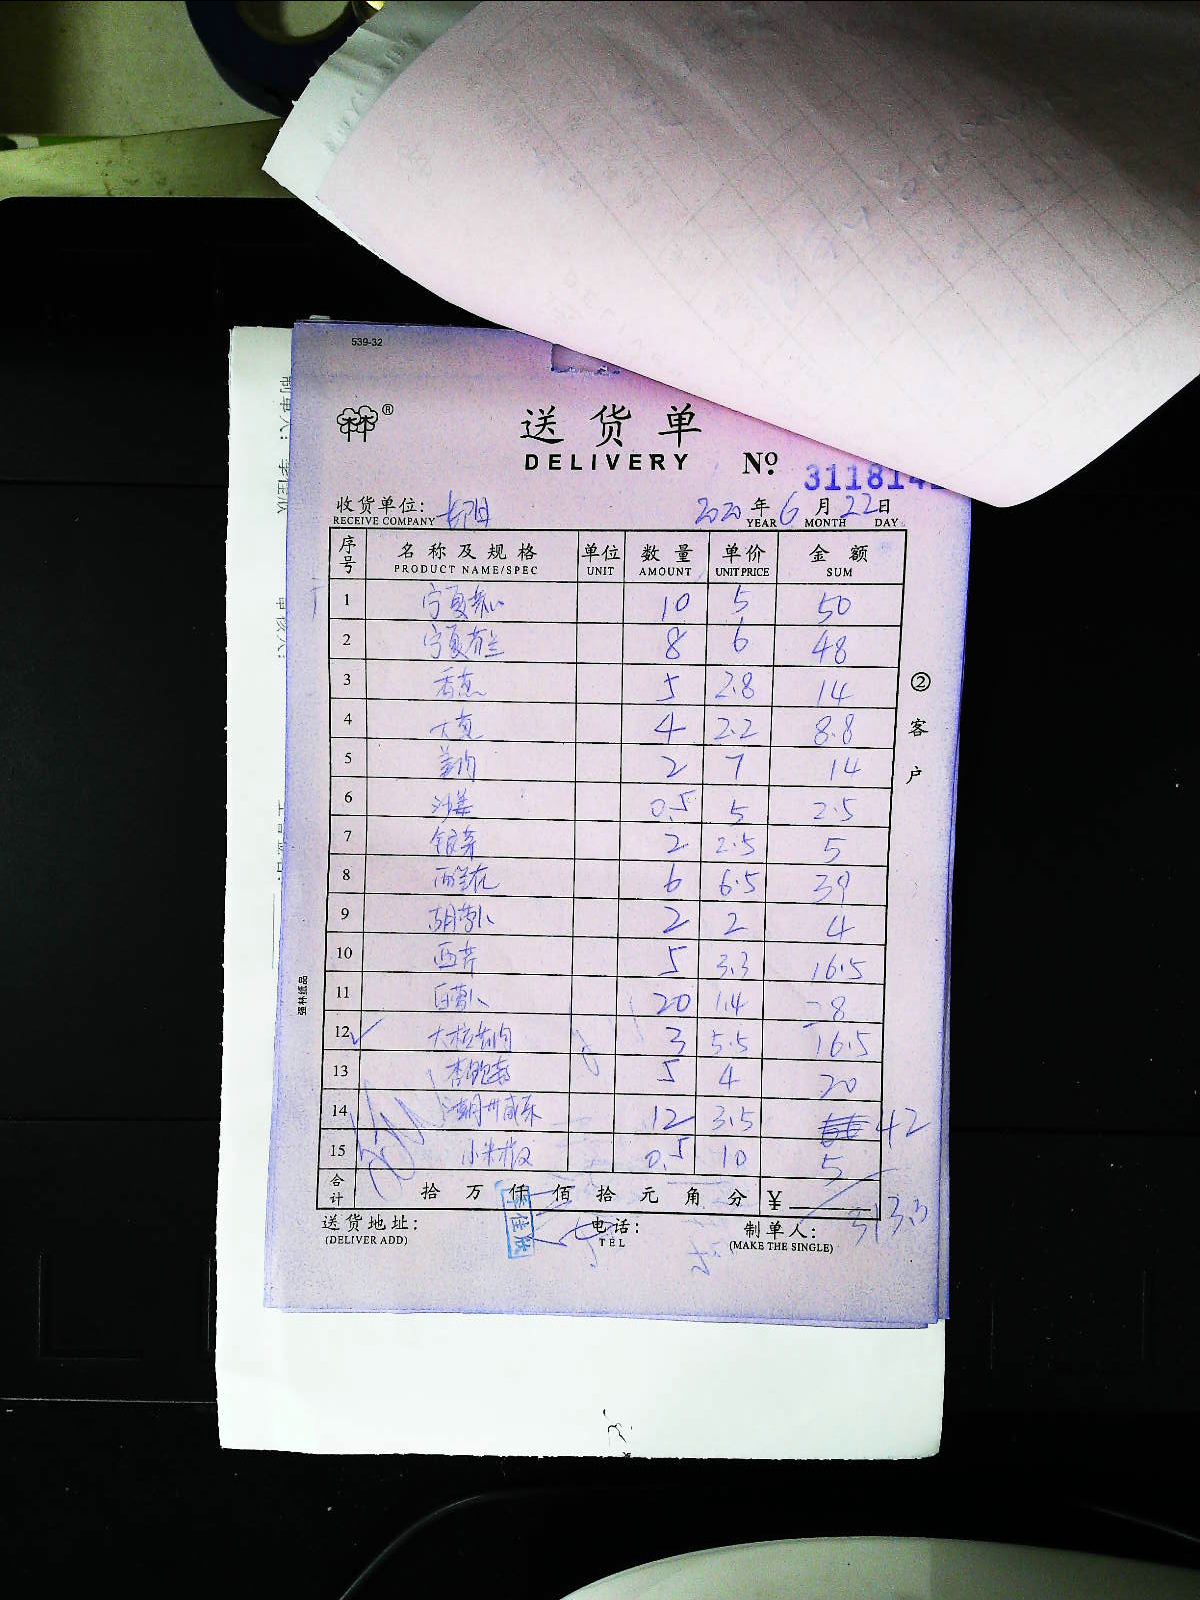 539-32
送货单
DELIVERY
No. 311814
收货单位:
RECEIVE COMPANY
2020 年 6 月 22 日
YEAR MONTH DAY
序号 名称及规格 单位 数量 单价 金额
PRODUCT NAME/SPEC UNIT AMOUNT UNIT PRICE SUM
1 宁夏菜心 10 5 50
2 宁夏芥兰 8 6 48
3 香葱 5 2.8 14
4 大葱 4 2.2 8.8
5 姜肉 2 7 14
6 沙姜 0.5 5 2.5
7 银芽 2 2.5 5
8 西兰花 6 6.5 39
9 胡萝卜 2 2 4
10 西芹 5 3.3 16.5
11 白萝卜 20 1.4 28
12 3 5.5 16.5
13 杏鲍菇 5 4 20
14 潮州咸菜 12 3.5 42
15 小米椒 0.5 10 5
合计 拾 万 仟 佰 拾 元 角 分 ¥ 313.3
送货地址:
(DELIVER ADD)
电话:
TEL
制单人:
(MAKE THE SINGLE)
②客户
强林纸品
制单人: 李佳欣
李佳欣